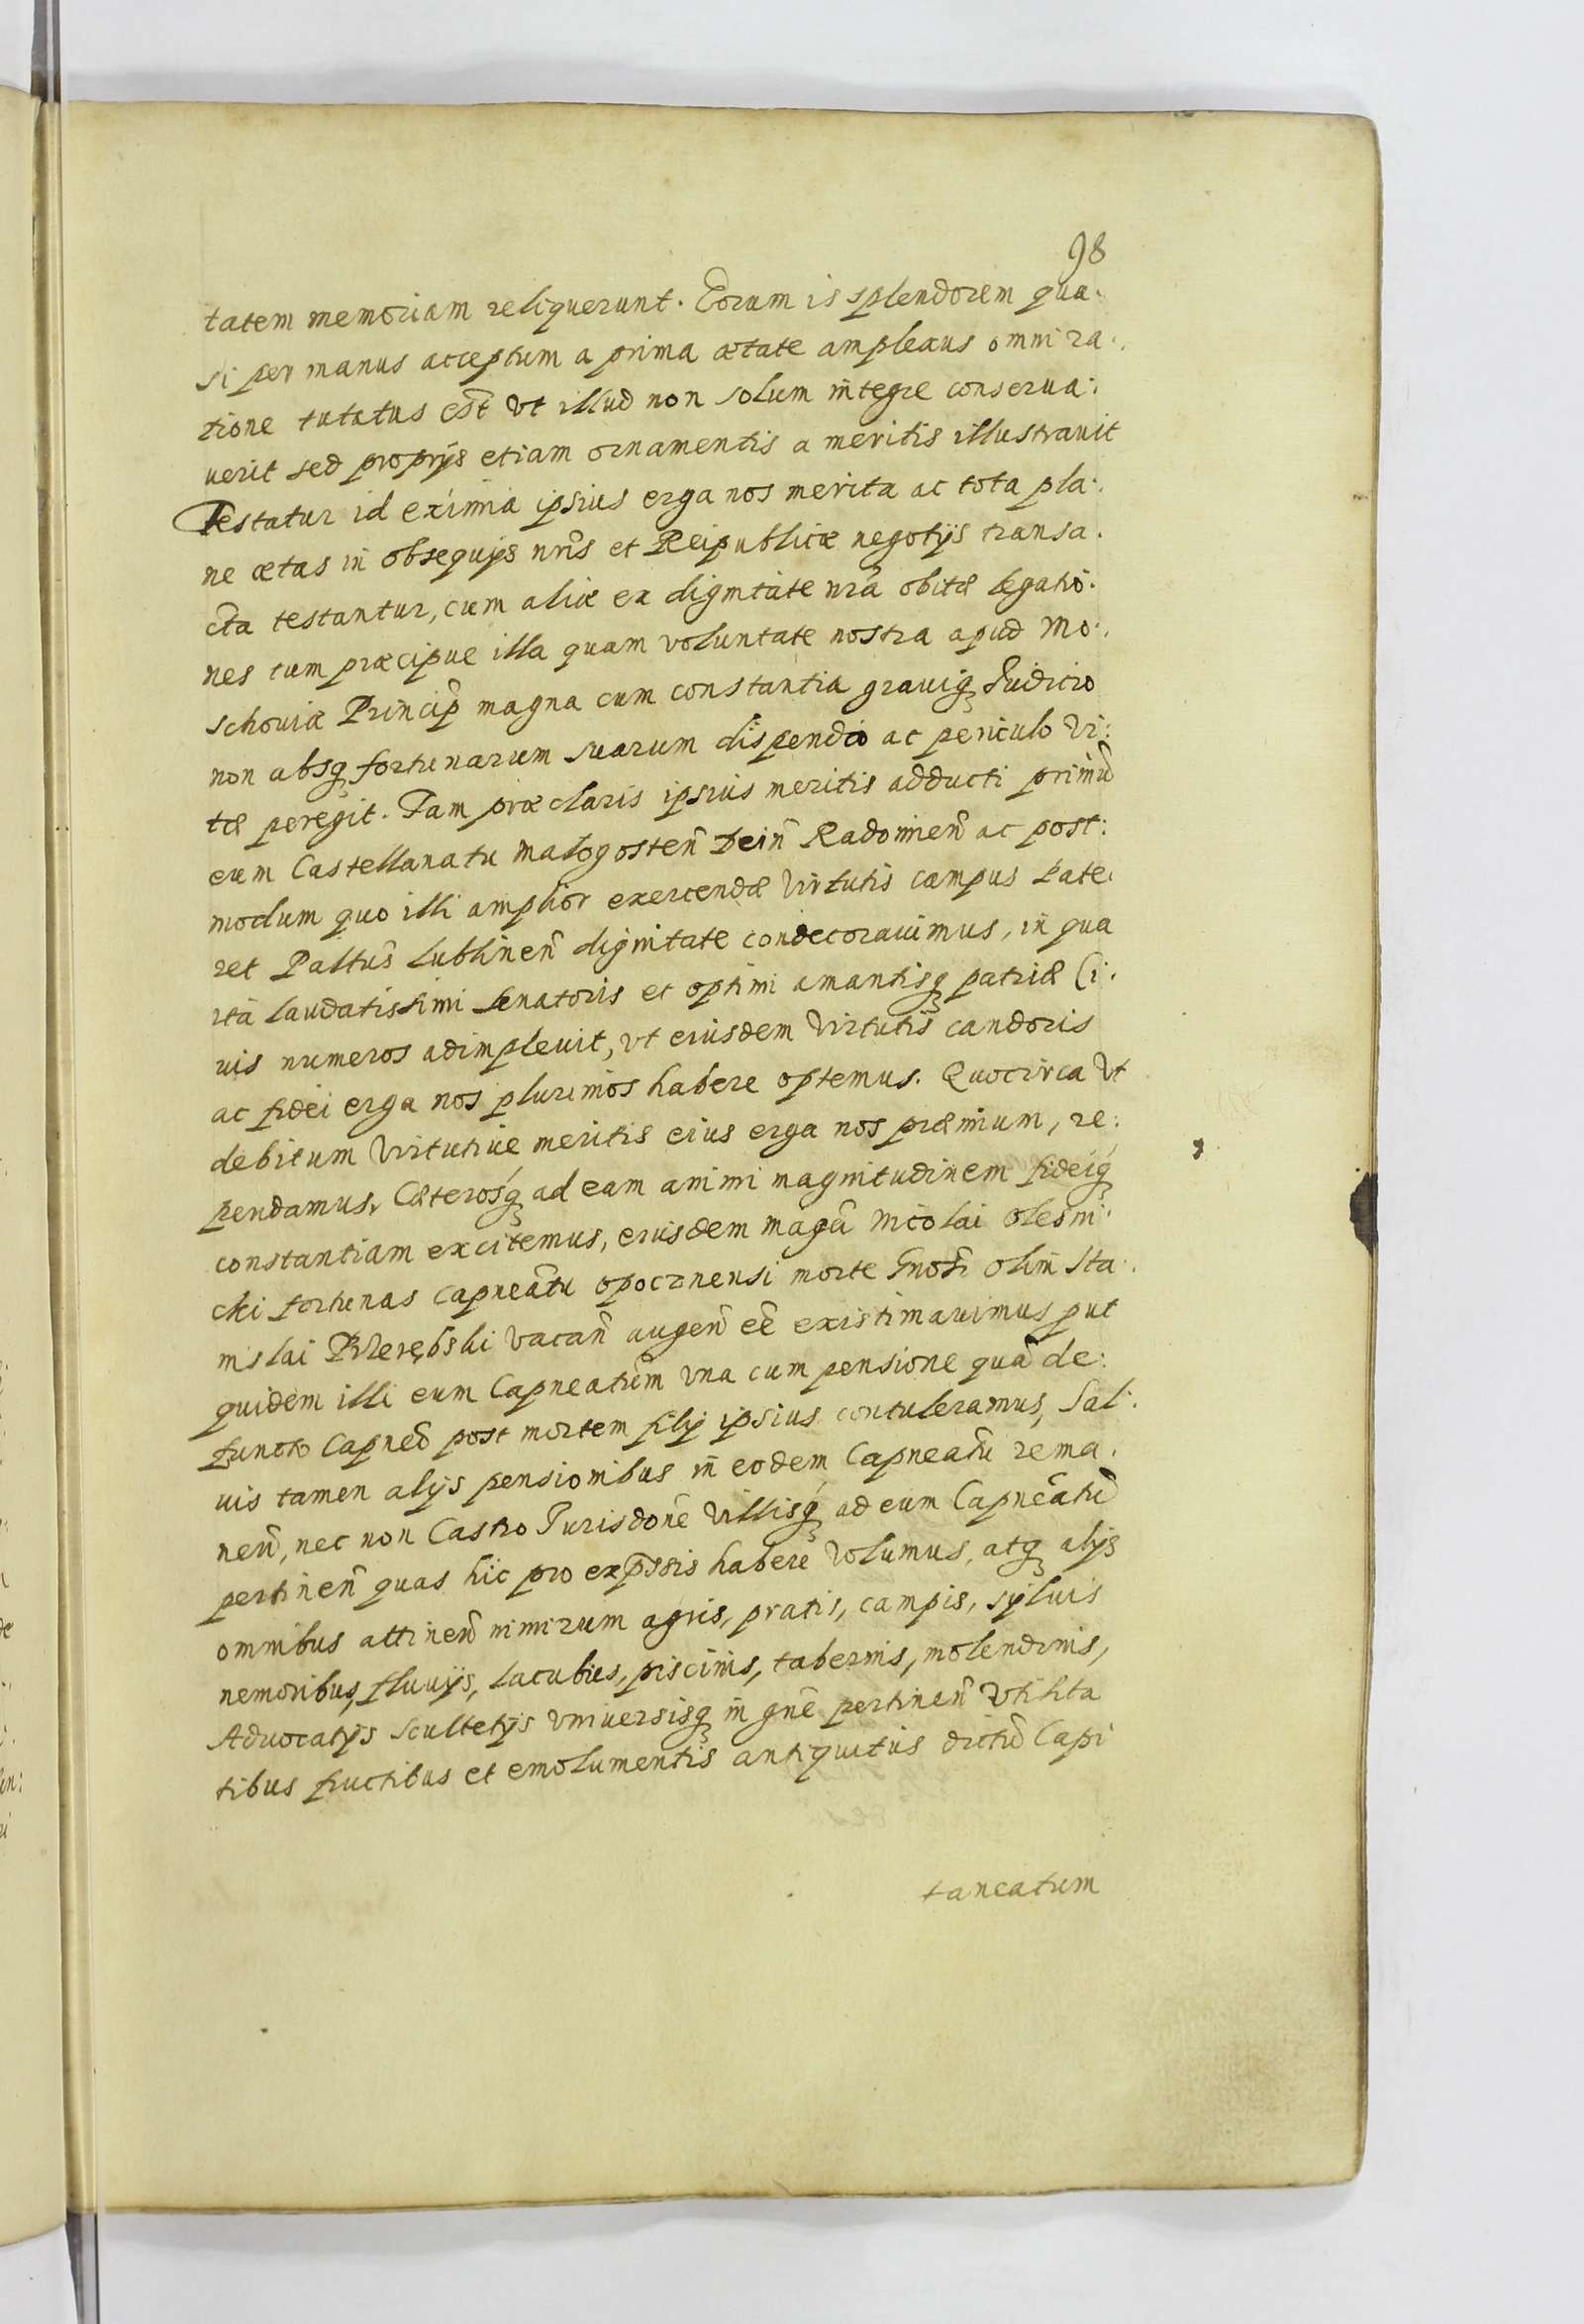 98
tatem memoriam reliquerunt. Eorum is splendorem qua:
si per manus acceptum a prima ætate amplexus omni ra:
tione tutatus est̃ vt illud non solum integre conserua:
uerit sed proprijs etiam ornamentis a meritis illustrauit
Testatur id eximia ipsius erga nos merita ac tota pla:
ne ætas in obsequijs nrĩs et Reipublicæ negotijs transa:
cta testantur, cum aliæ ex dignitate nrã obitæ legatio:
nes tum præcipue illa quam voluntate nostra apud Mo:
schouiæ Princip̃ magna cum constantia grauiq́ Iudicio
non absq́ fortunarum suarum dispendio ac periculo vi:
tæ peregit. Tam præclaris ipsius meritis adducti primũ
eum Castellanatu Małogosten̄ Dein̄ Radomien̄ ac post:
modum quo illi amplior exercendæ virtutis campus pate:
ret Paltus̃ Lublinen̄ dignitate condecorauimus, in qua
ita laudatissimi Senatoris et optimi amantisq́ patriæ Ci:
uis numeros adimpleuit, vt eiusdem virtutis candoris
ac fidei erga nos plurimos habere optemus. Quocirca vt
debitum virtutiue meritis eius erga nos præmium, re:
pendamus, Cæterosq́ ad eam animi magnitudinem fideiq́
constantiam excitemus, eiusdem magcĩ Nicolai Olesni:
cki fortunas Capneãtu opocznensi morte Gnosĩ olim Sta:
nislai Przerębski vacan̄ augen̄ eẽ existimauimus put
quidem illi eum Capneatũm vna cum pensione quã de:
functo Capneõ post mortem filij ipsius contuleramus, Sal:
uis tamen alijs pensionibus in eodem Capneatũ rema:
nen̄, nec non Castro Jurisdonẽ villisq́ ad eum Capneãtũ
pertinen̄ quas hic pro exp̄ssis habere volumus, atq́ alijs
omnibus attinen̄ nimirum agris, pratis, campis, syluis
nemoribus, fluuijs, lacubus, piscinis, tabernis, molendinis,
Aduocatijs Scultetijs vniuersisq́ in gnẽ pertinen̄ vtilita
tibus fructibus et emolumentis antiquitus dictũ Capi
taneatum